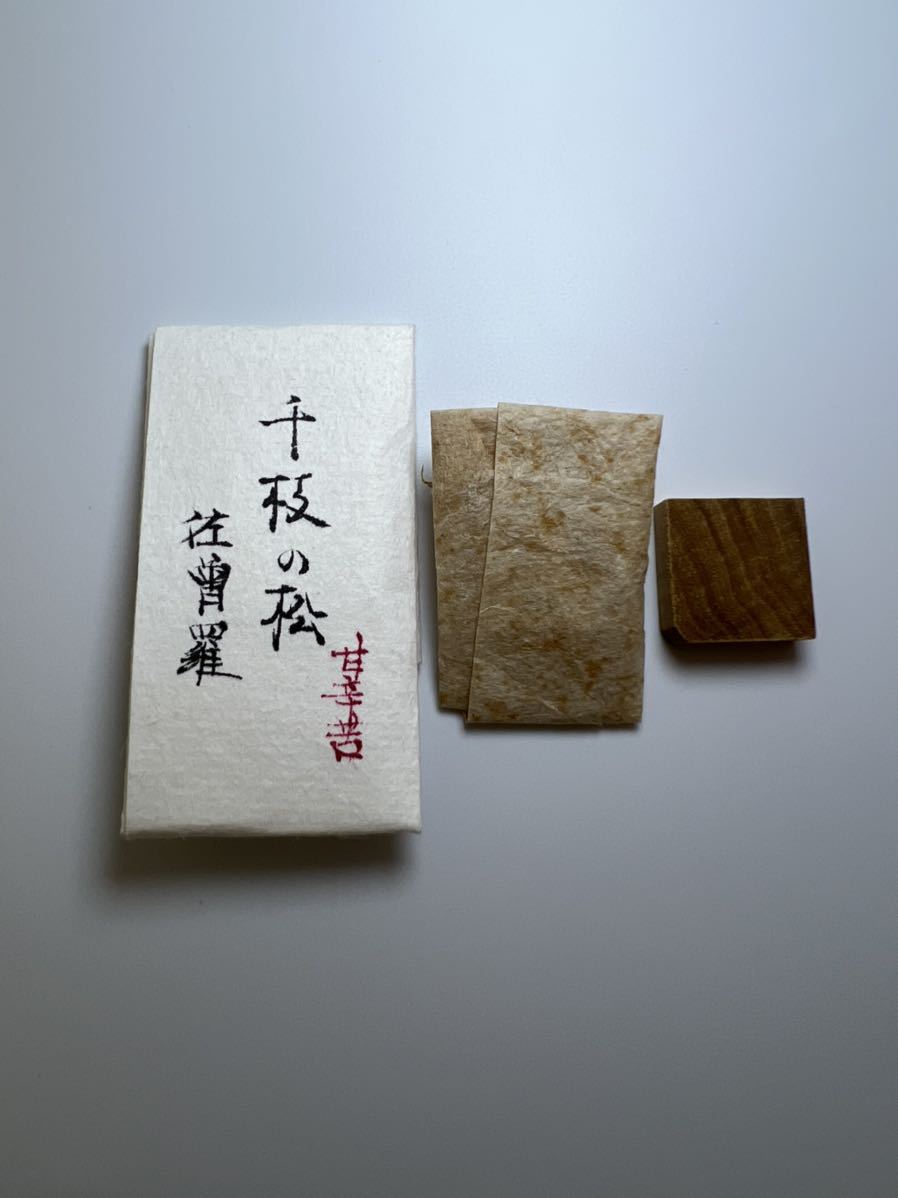 千枝の松
佐曽羅
甘辛苦